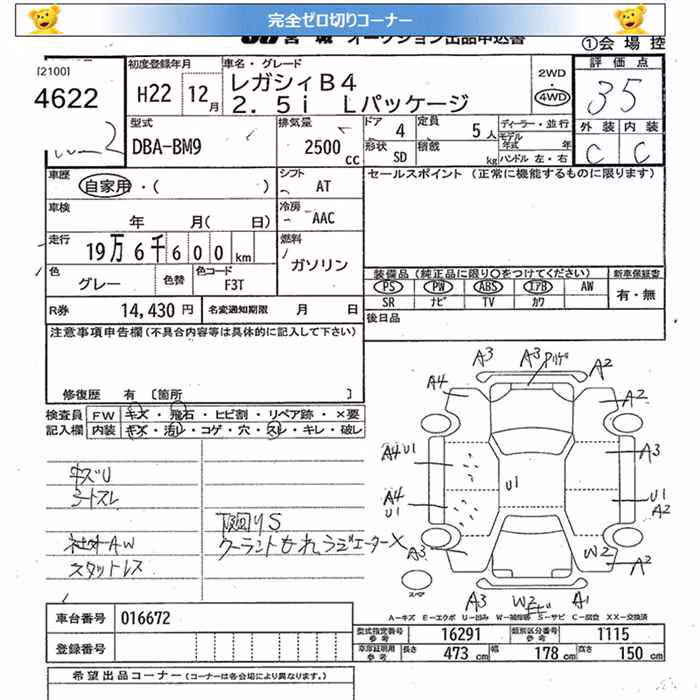 完全ゼロ切りコーナー
宮城 オークション出品申込書
①会場控
[2100]
4622
初度登録年月
H22 12月
車名・グレード
レガシィB4
2.5i Lパッケージ
2WD
・
4WD
評価点
35
外装 内装
C C
型式
DBA-BM9
排気量
2500cc
ドア 4
形状 SD
定員 5人
積載 kg
ディーラー・並行
モデル年式 年式
ハンドル 左・右
車歴
自家用・( )
シフト
AT
セールスポイント (正常に機能するものに限ります)
車検
年 月( 日)
冷房
AAC
走行
19万6千600km
燃料
ガソリン
色
グレー
色替
色コード
F3T
装備品(純正品に限り○をつけてください)
PS PW ABS エアB AW
SR ナビ TV カワ
新車保証書
有・無
R券 14,430円
名変通知期限 月 日
後日品
注意事項申告欄(不具合内容等は具体的に記入して下さい)
修復歴 有 [箇所 ]
検査員 FW キズ・飛石・ヒビ割・リペア跡・×要
記入欄 内装 キズ・汚レ・コゲ・穴・スレ・キレ・破レ
キズU
シートスレ
社外AW
スタットレス
下廻りS
クーラントもれラジエーター×
A3 A3 A2
A4 A2
A4 U1 A3
U1
A4 U1 U1 A2
A3 W2 A2
スペア
A3 W2 A1
A-キズ E-エクボ U-凹み W-補修跡 S-サビ C-腐食 XX-交換済
車台番号 016672
登録番号
型式指定番号参考 16291 類別区分番号参考 1115
車庫証明用参考 長さ 473cm 幅 178cm 高さ 150cm
希望出品コーナー(コーナーは各会場により異なります。)